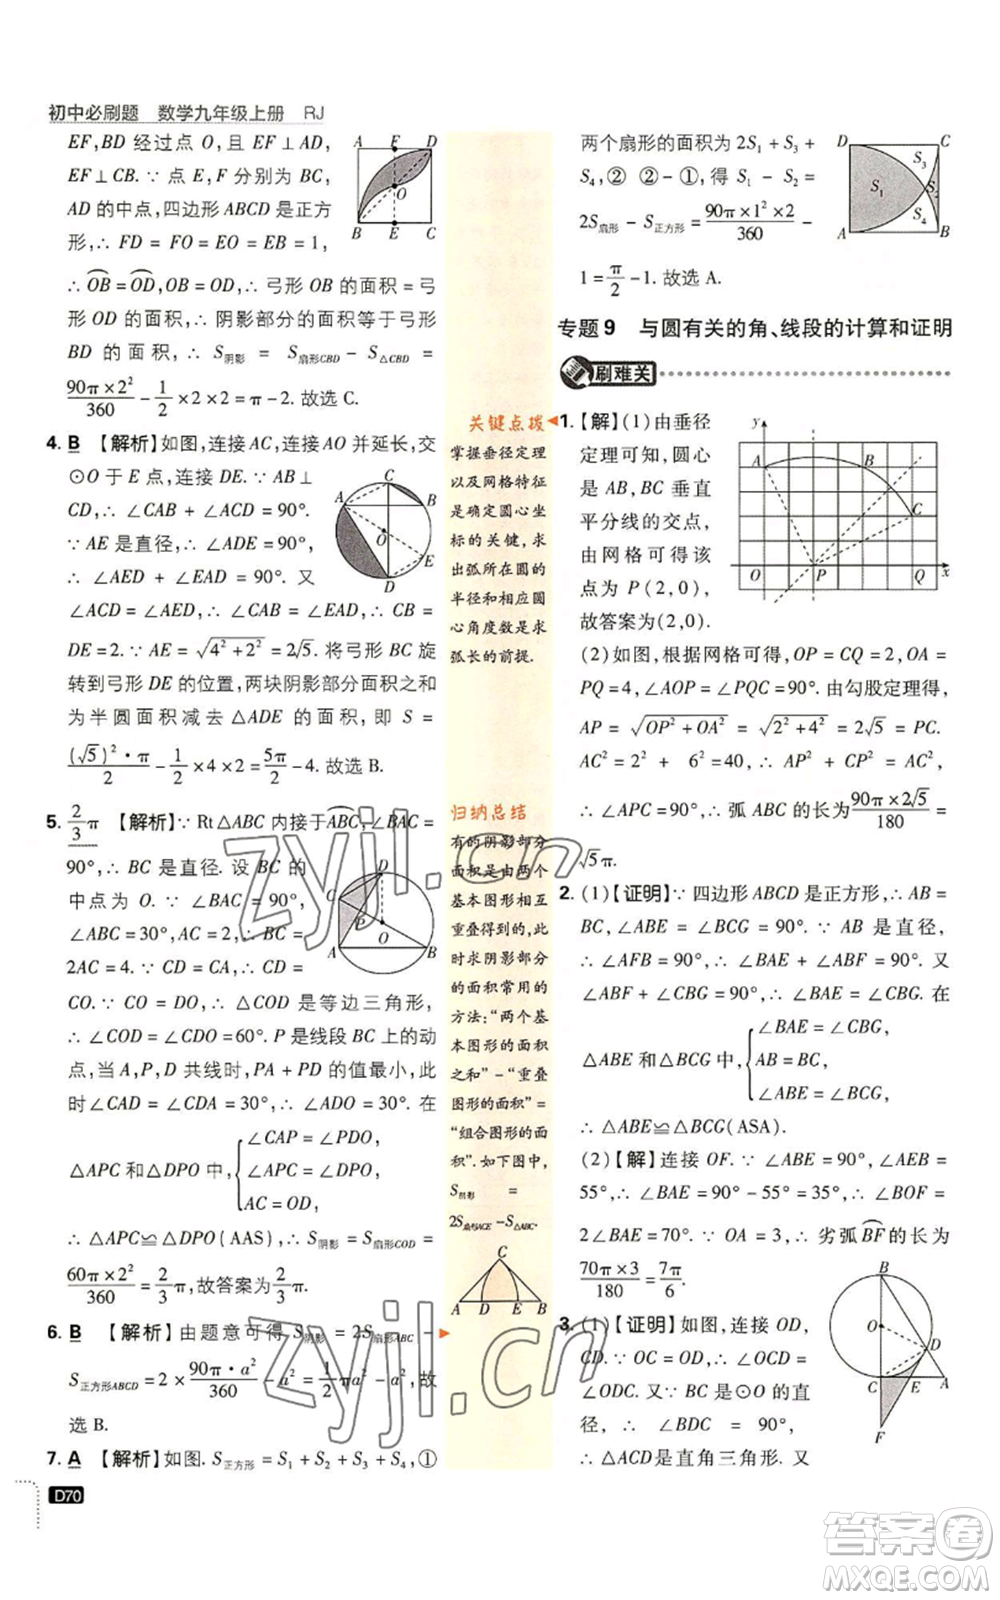 初中必刷题 数学九年级上册 RJ
EF,BD 经过点 O,∴ EF⊥AD,
EF⊥CB.∵ 点 E,F 分别为 BC,
AD 的中点,四边形 ABCD 是正方
形,∴ FD = FO = EO = EB = 1,
∴ OB = OD,∴ 弓形 OB 的面积 = 弓
形 OD 的面积,∴ 阴影部分的面积等于弓形
BD 的面积,∴ S阴影 = S扇形CBD − S△CBD =
90π×2²/360 − 1/2×2×2 = π−2.故选 C.
4. B 【解析】如图,连接 AC,连接 AO 并延长,交
⊙O 于 E 点,连接 DE.∵ AB⊥
CD,∴ ∠CAB + ∠ACD = 90°.
∵ AE 是直径,∴ ∠ADE = 90°,
∴ ∠AED + ∠EAD = 90°. 又
∠ACD = ∠AED,∴ ∠CAB = ∠EAD,∴ CB =
DE = 2.∵ AE = √4²+2² = 2√5. 将弓形 BC 旋
转到弓形 DE 的位置,两块阴影部分面积之和
为半圆面积减去 △ADE 的面积,即 S =
(√5)²·π/2 − 1/2×4×2 = 5π/2 − 4.故选 B.
5. 2/3 π 【解析】∵ Rt△ABC 内接于 ABC,∠BAC =
90°,∴ BC 是直径. 设 BC 的
中点为 O. ∵ ∠BAC = 90°,
∠ABC = 30°,AC = 2,∴ BC =
2AC = 4. ∵ CD = CA,∴ CD =
CO. ∵ CO = DO,∴ △COD 是等边三角形,
∴ ∠COD = ∠CDO = 60°. P 是线段 BC 上的动
点,当 A,P,D 共线时,PA + PD 的值最小,此
时 ∠CAD = ∠CDA = 30°,∴ ∠ADO = 30°. 在
△APC 和△DPO 中,{∠CAP = ∠PDO,
∠APC = ∠DPO,
AC = OD,
∴ △APC≌△DPO(AAS),∴ S阴影 = S扇形COD =
60π×2²/360 = 2/3 π,故答案为 2/3 π.
6. B 【解析】由题意可得 S阴影 = 2S扇形ABC −
S正方形ABCD = 2 × 90π·a²/360 − a² = π/2 a² − a²,故
选 B.
7. A 【解析】如图. S正方形 = S1 + S2 + S3 + S4,①
D70
A F D
O
B E C
C
A B
O
E
D
D
C
P
O
A B
关键点拨
掌握垂径定理
以及网格特征
是确定圆心坐
标的关键,求
出弧所在圆的
半径和相应圆
心角度数是求
弧长的前提.
归纳总结
有的阴影部分
面积是由两个
基本图形相互
重叠得到的,此
时求阴影部分
的面积常用的
方法:“两个基
本图形的面积
之和”−“重叠
图形的面积”=
“组合图形的面
积”.如下图中,
S阴影 =
2S扇形ACE − S△ABC.
C
A D E B
两个扇形的面积为 2S1 + S3 +
S4,② ②−①,得 S1 − S2 =
2S扇形 − S正方形 = 90π×1²×2/360 −
1 = π/2 − 1.故选 A.
D C
S3
S1 S2
S4
A B
专题 9 与圆有关的角、线段的计算和证明
刷难关
1. 【解】(1)由垂径
定理可知,圆心
是 AB,BC 垂直
平分线的交点,
由网格可得该
点为 P(2,0),
故答案为(2,0).
y
A B
C
O P Q x
(2)如图,根据网格可得,OP = CQ = 2,OA =
PQ = 4,∠AOP = ∠PQC = 90°.由勾股定理得,
AP = √OP²+OA² = √2²+4² = 2√5 = PC.
AC² = 2² + 6² = 40,∴ AP² + CP² = AC²,
∴ ∠APC = 90°,∴ 弧 ABC 的长为 90π×2√5/180 =
√5π.
2. (1)【证明】∵ 四边形 ABCD 是正方形,∴ AB =
BC,∠ABE = ∠BCG = 90°. ∵ AB 是直径,
∴ ∠AFB = 90°,∴ ∠BAE + ∠ABF = 90°. 又
∠ABF + ∠CBG = 90°,∴ ∠BAE = ∠CBG. 在
△ABE 和△BCG 中,{∠BAE = ∠CBG,
AB = BC,
∠ABE = ∠BCG,
∴ △ABE≌△BCG(ASA).
(2)【解】连接 OF.∵ ∠ABE = 90°,∠AEB =
55°,∴ ∠BAE = 90° − 55° = 35°,∴ ∠BOF =
2∠BAE = 70°. ∵ OA = 3,∴ 劣弧 BF 的长为
70π×3/180 = 7π/6.
3. (1)【证明】如图,连接 OD,
CD. ∵ OC = OD,∴ ∠OCD =
∠ODC. 又∵ BC 是⊙O 的直
径,∴ ∠BDC = 90°,
∴ △ACD 是直角三角形. 又
B
O
D
C E A
F
zyjl.cn
zyjl.cn
答案圈
MXQE.COM